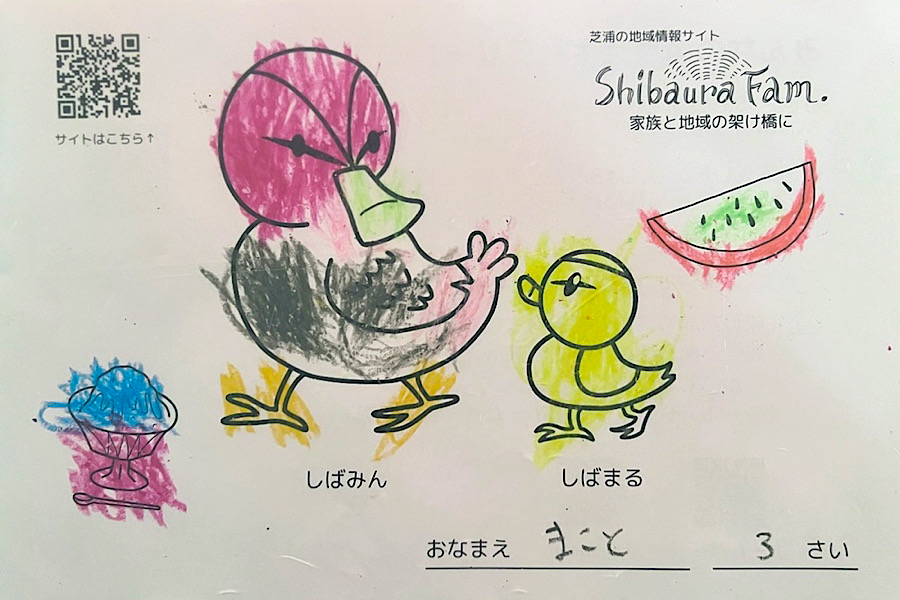 芝浦の地域情報サイト
Shibaura Fam.
家族と地域の架け橋に
サイトはこちら↑
しばみん
しばまる
おなまえ まこと 3 さい